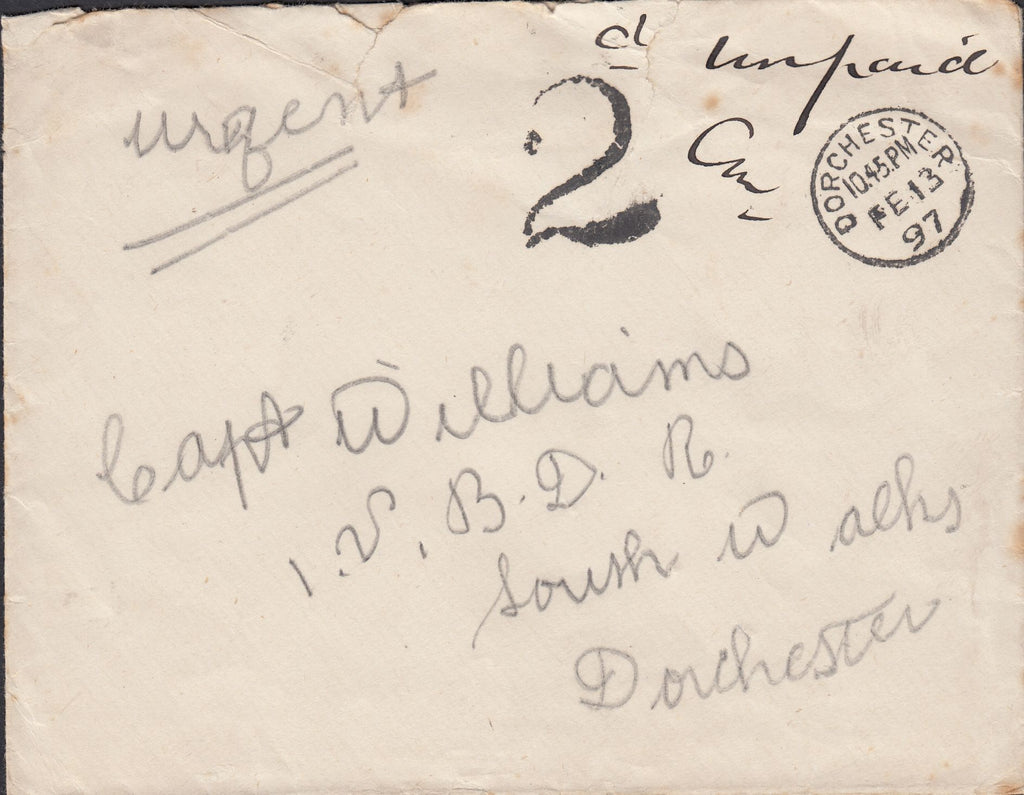 urgent
2
d unpaid
DORCHESTER
10.45.PM
FE 13
97
Capt Williams
1. V. B. D. R.
South Walks
Dorchester